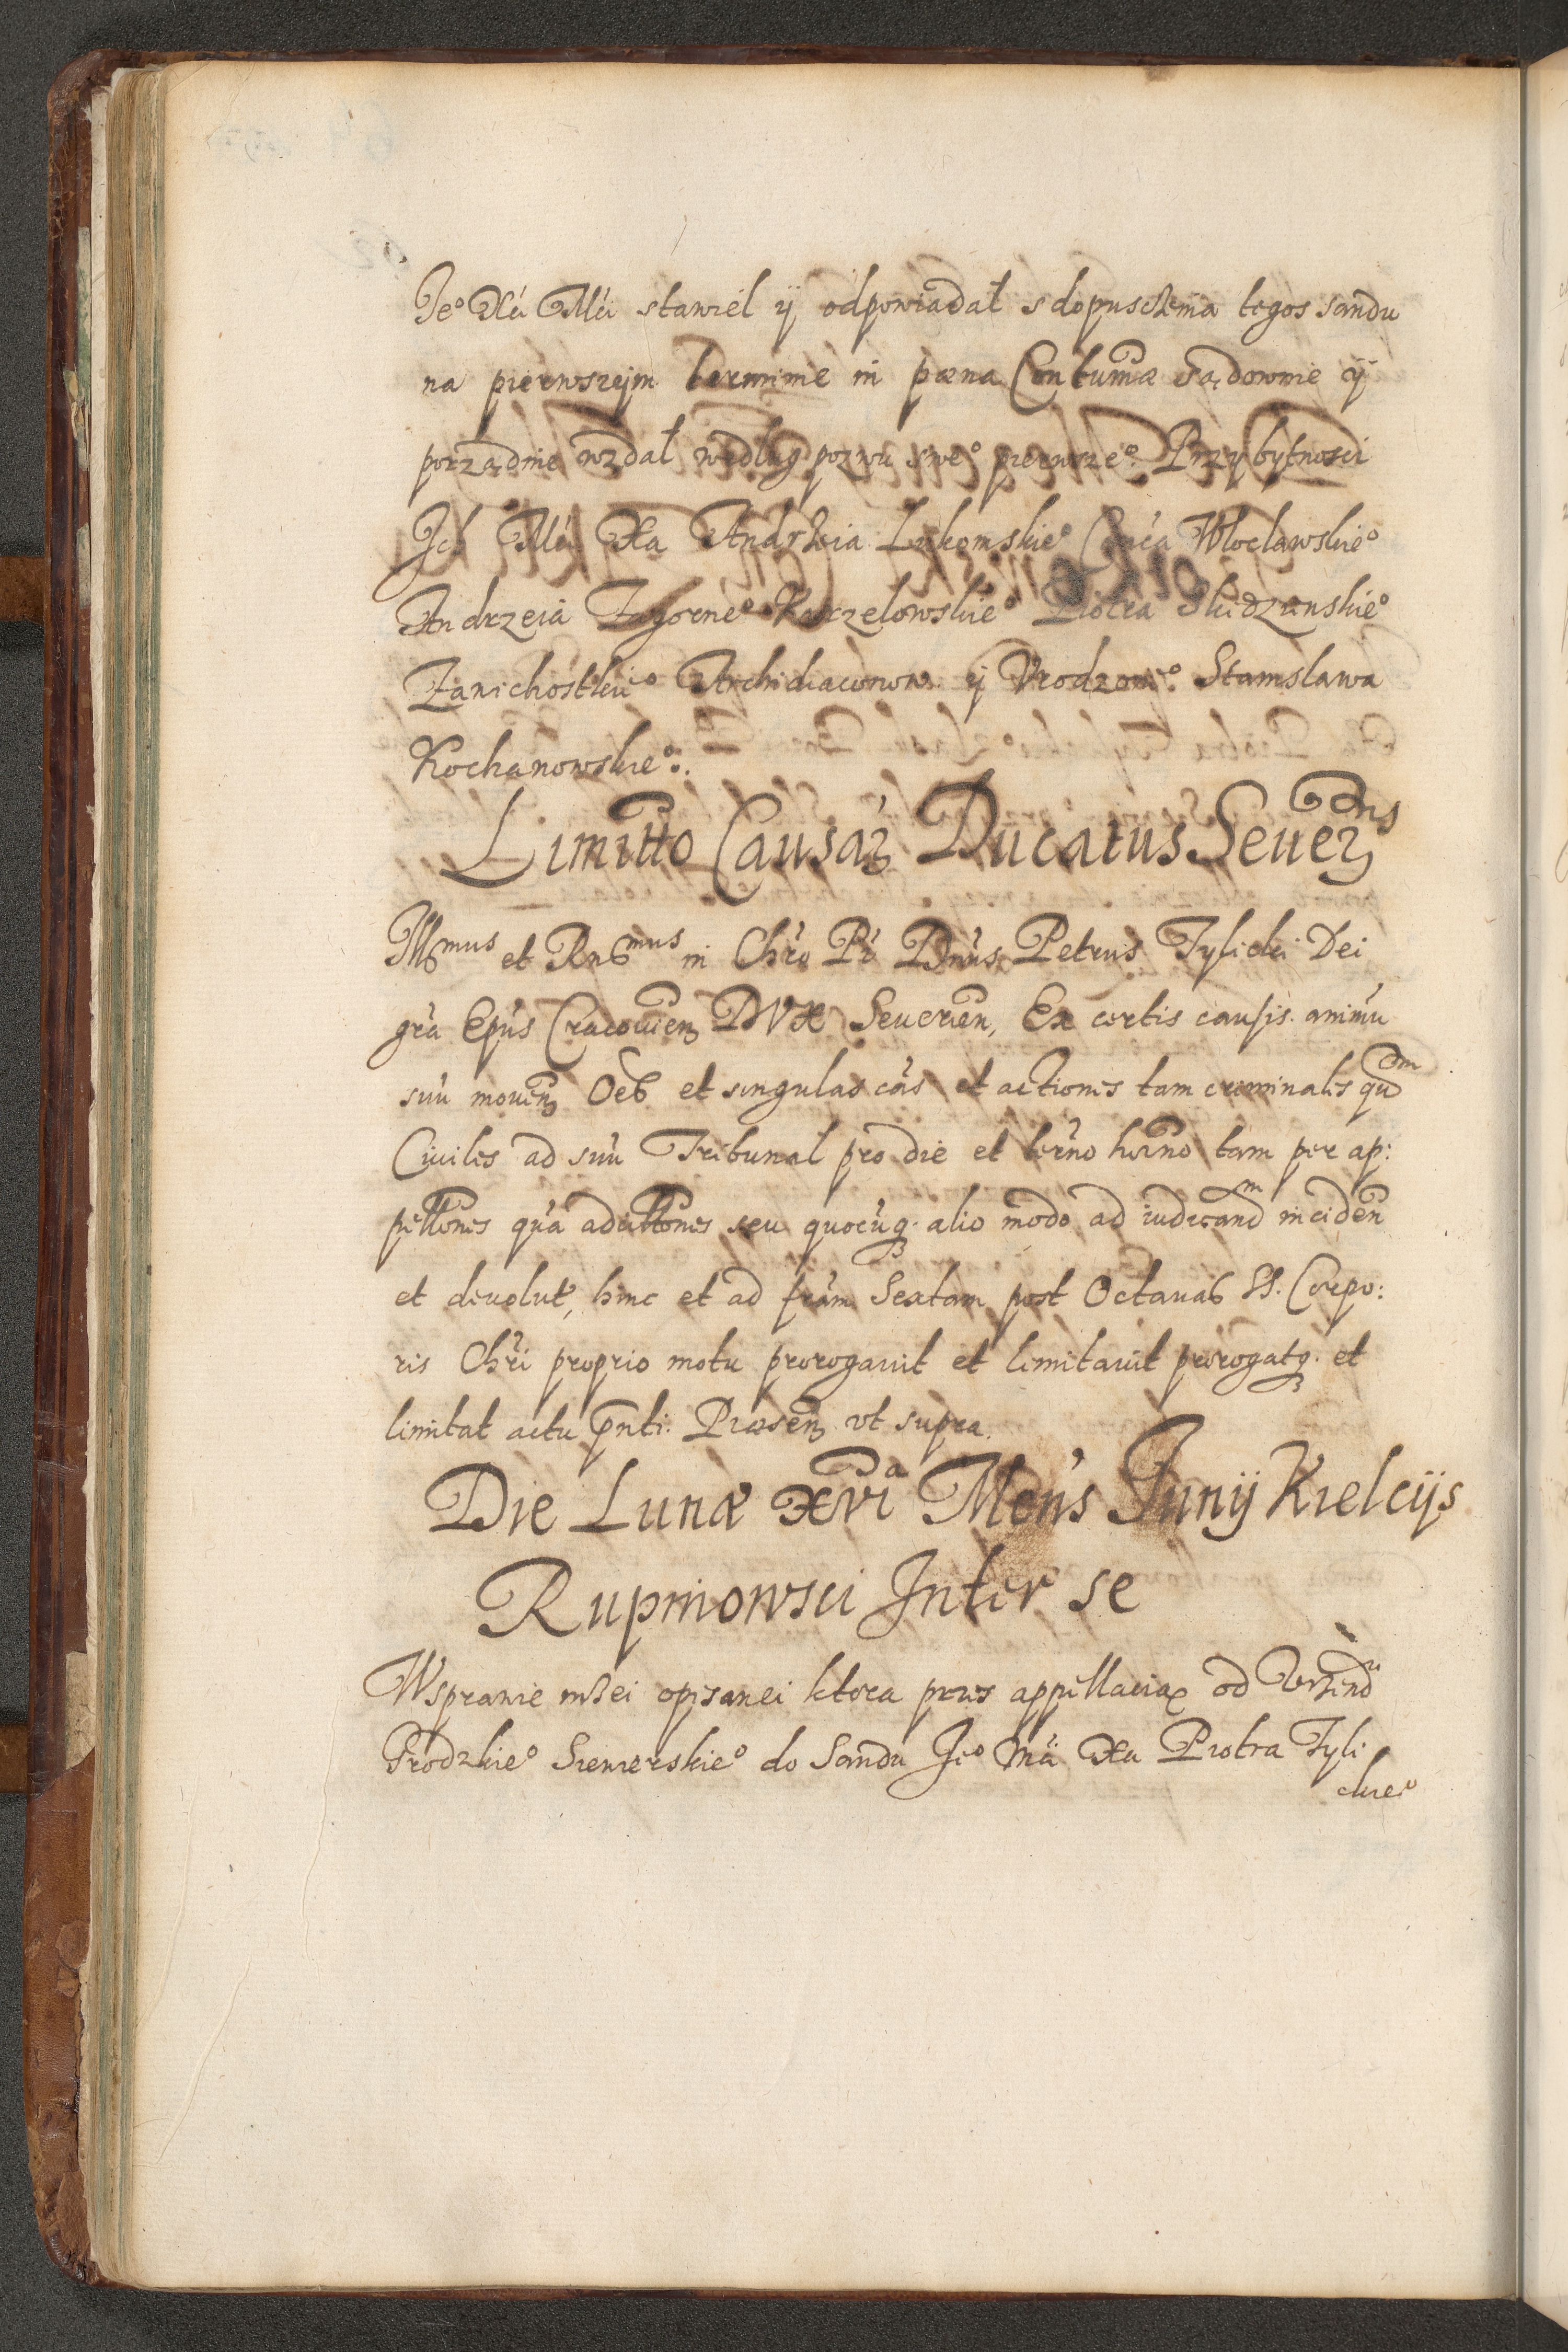 Je⁰ Xá Mái stawiel ÿ odpowiadał s dopusczenia tegos sandu
na pierwszejm terminie in pæna Contumã Sądownie ÿ
porządnie wzdał według pozwu swe⁰ pierwsze⁰. Przy bytnosci
Jch Mći Xa Andrzeia Lukomskie⁰ Włocławskie⁰
Andrzeia Zagorne⁰ Kurzelowskie⁰ Piotra Skidzinskie⁰
Zawichostkie⁰ Archidiaconow ÿ Vrodzone⁰ Stanisława
Kochanowskie⁰.
Limitto Causaꝝ Ducatus Seueꝝns
Illmus et Rndmus in Chro Pr Dnus Petrus Tylicki Dei
gra Epus Cracouien DVX Seuerien, Ex certis causis animu
suu mouen Oes et singulas cas et actiones tam criminales qum
Ciuiles ad suu Tribunal pro die et termo horno tam per ap:
pellones qua adcittones seu quocuq alio modo ad iudicandm inciden
et deuolut, hinc et ad feram Sextam post Octauas SS. Corpo:
ris Chri proprio motu prorogauit et limitauit prorogatq. et
limitat actu pnti. Præsen vt supra.
Die Lunæ xviᵃ Mens Junÿ Kielcÿs
Rupniowsci Inter se
W sprawie nizei opisanei ktora przes appellacią od Vrzendu
Grodzkie⁰ Siewierskie⁰ do Sandu Je⁰ Mći Xa Piotra Tyli
ckie⁰